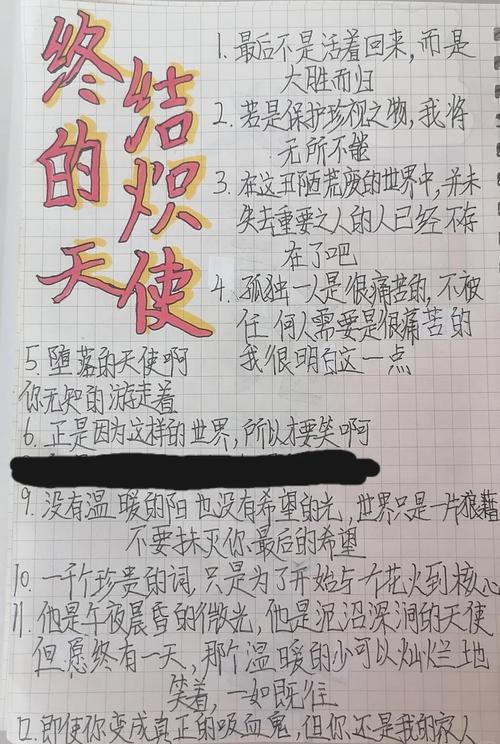 终结的炽天使
1. 最后不是活着回来,而是
大胜而归
2. 若是保护珍视之物,我将
无所不能
3. 在这丑陋荒废的世界中,并未
失去重要之人的人已经不存
在了吧
4. 孤独一人是很痛苦的,不被
任何人需要是很痛苦的
我很明白这一点
5. 堕落的天使啊
你无知的游走着
6. 正是因为这样的世界,所以才要笑啊
9. 没有温暖的阳也没有希望的光,世界只是一片狼藉
不要抹灭你最后的希望
10. 一千个珍贵的词,只是为了开始与花火到核心
11. 他是午夜晨昏的微光,他是泥沼深渊的天使
但愿终有一天,那个温暖的少可以灿烂地
笑着,一如既往
12. 即使你变成真正的吸血鬼,但你还是我的家人